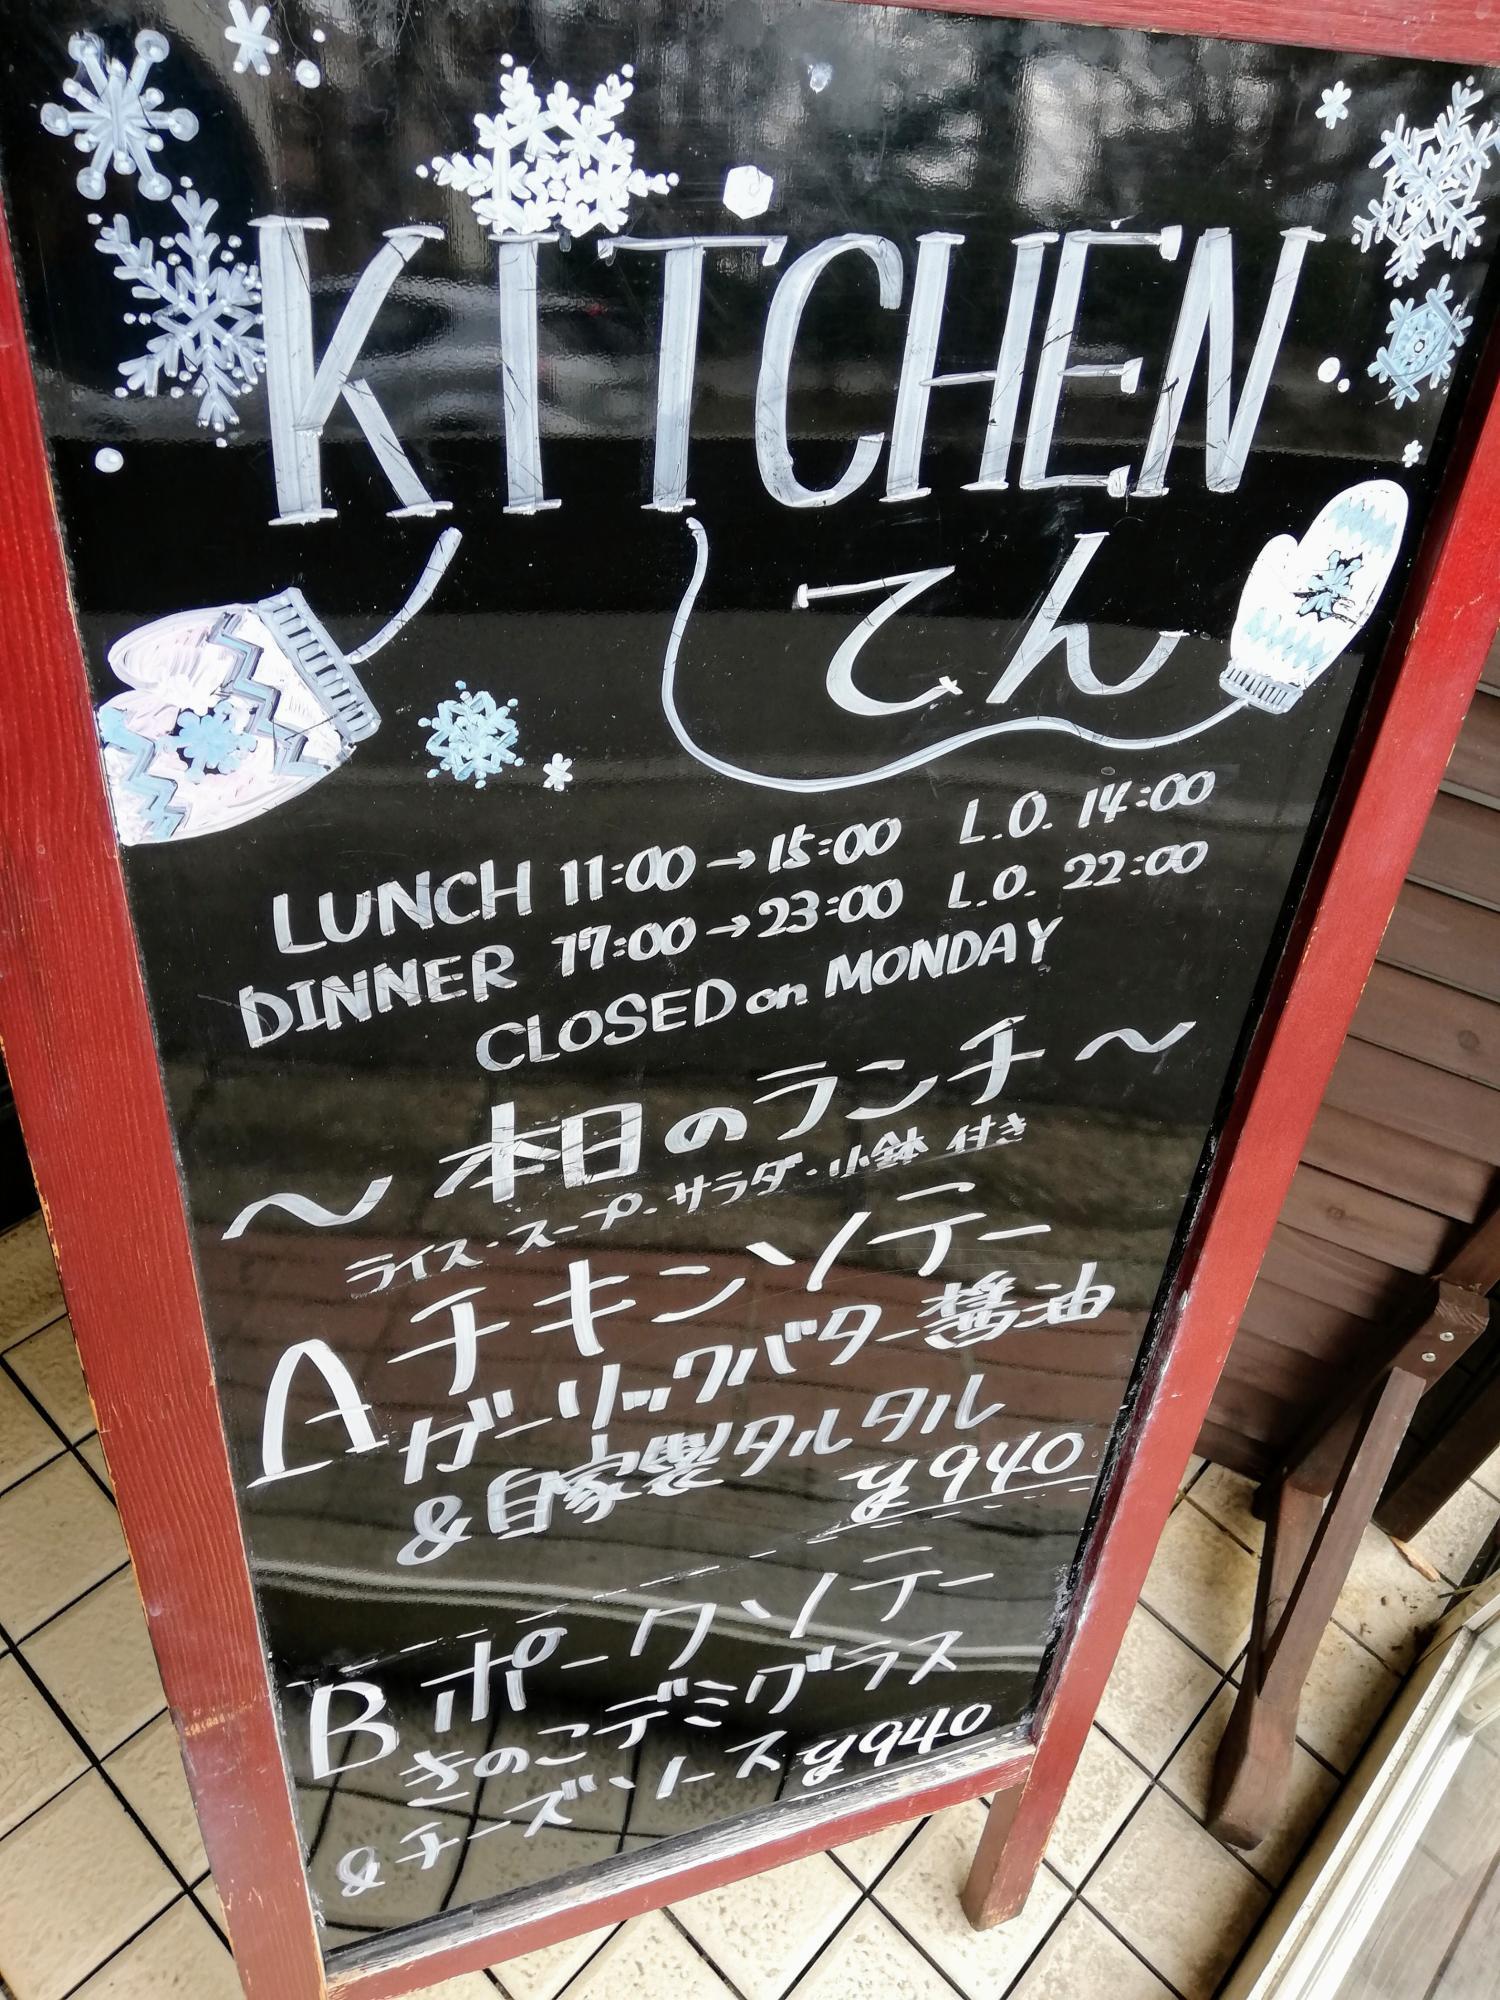 KITCHEN
てん
LUNCH 11:00→15:00 L.O. 14:00
DINNER 17:00→23:00 L.O. 22:00
CLOSED on MONDAY
〜本日のランチ〜
ライス・スープ・サラダ・小鉢 付き
A チキンソテー
ガーリックバター醤油
&自家製タルタル
¥940
B ポークソテー
きのこデミグラス
&チーズソース ¥940